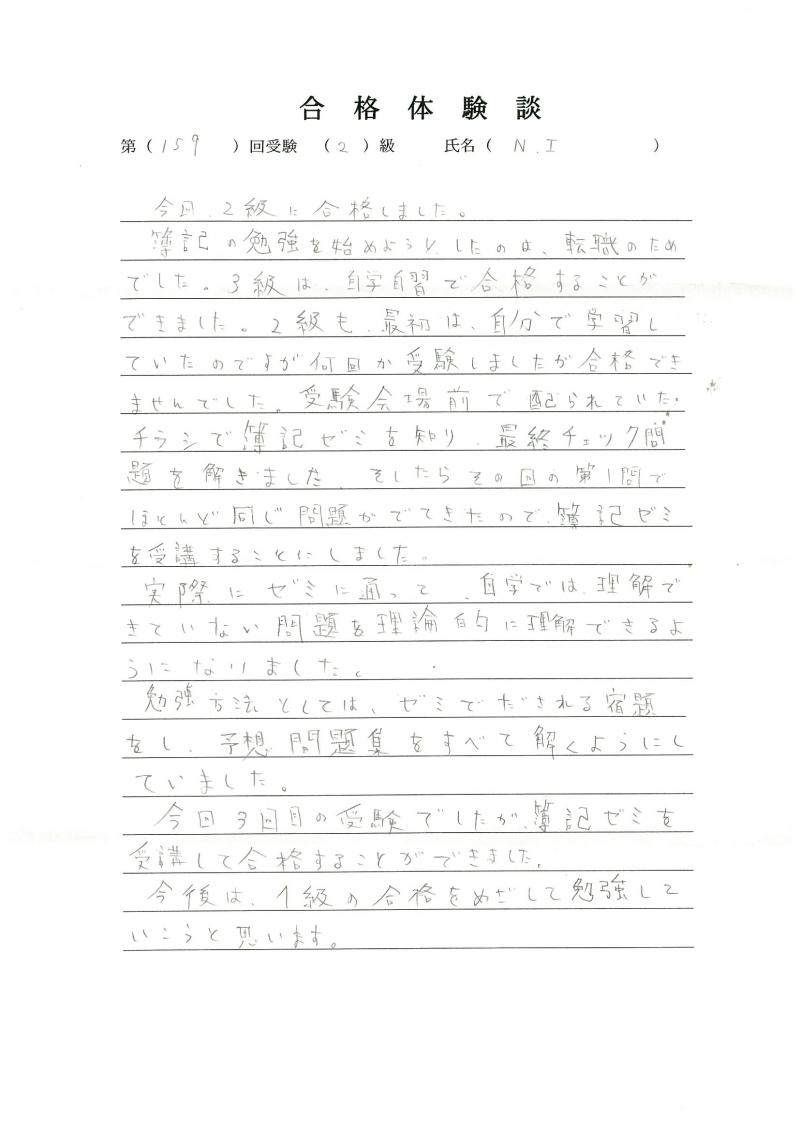 合格体験談
第（159　）回受験　（2）級　氏名（　N.I　）
今回、2級に合格しました。
簿記の勉強を始めようとしたのは、転職のため
でした。3級は、自学自習で合格することが
できました。2級も、最初は、自分で学習し
ていたのですが何回か受験しましたが合格でき
ませんでした。受験会場前で配られていた
チラシで簿記ゼミを知り、最終チェック問
題を解きました、そしたらその回の第1問で
ほとんど同じ問題がでてきたので、簿記ゼミ
を受講することにしました。
実際にゼミに通って、自学では、理解で
きていない問題を理論的に理解できるよ
うになりました。
勉強方法としては、ゼミでだされる宿題
をし、予想問題集をすべて解くようにし
ていました。
今回3回目の受験でしたが、簿記ゼミを
受講して合格することができました。
今後は、1級の合格をめざして勉強して
いこうと思います。